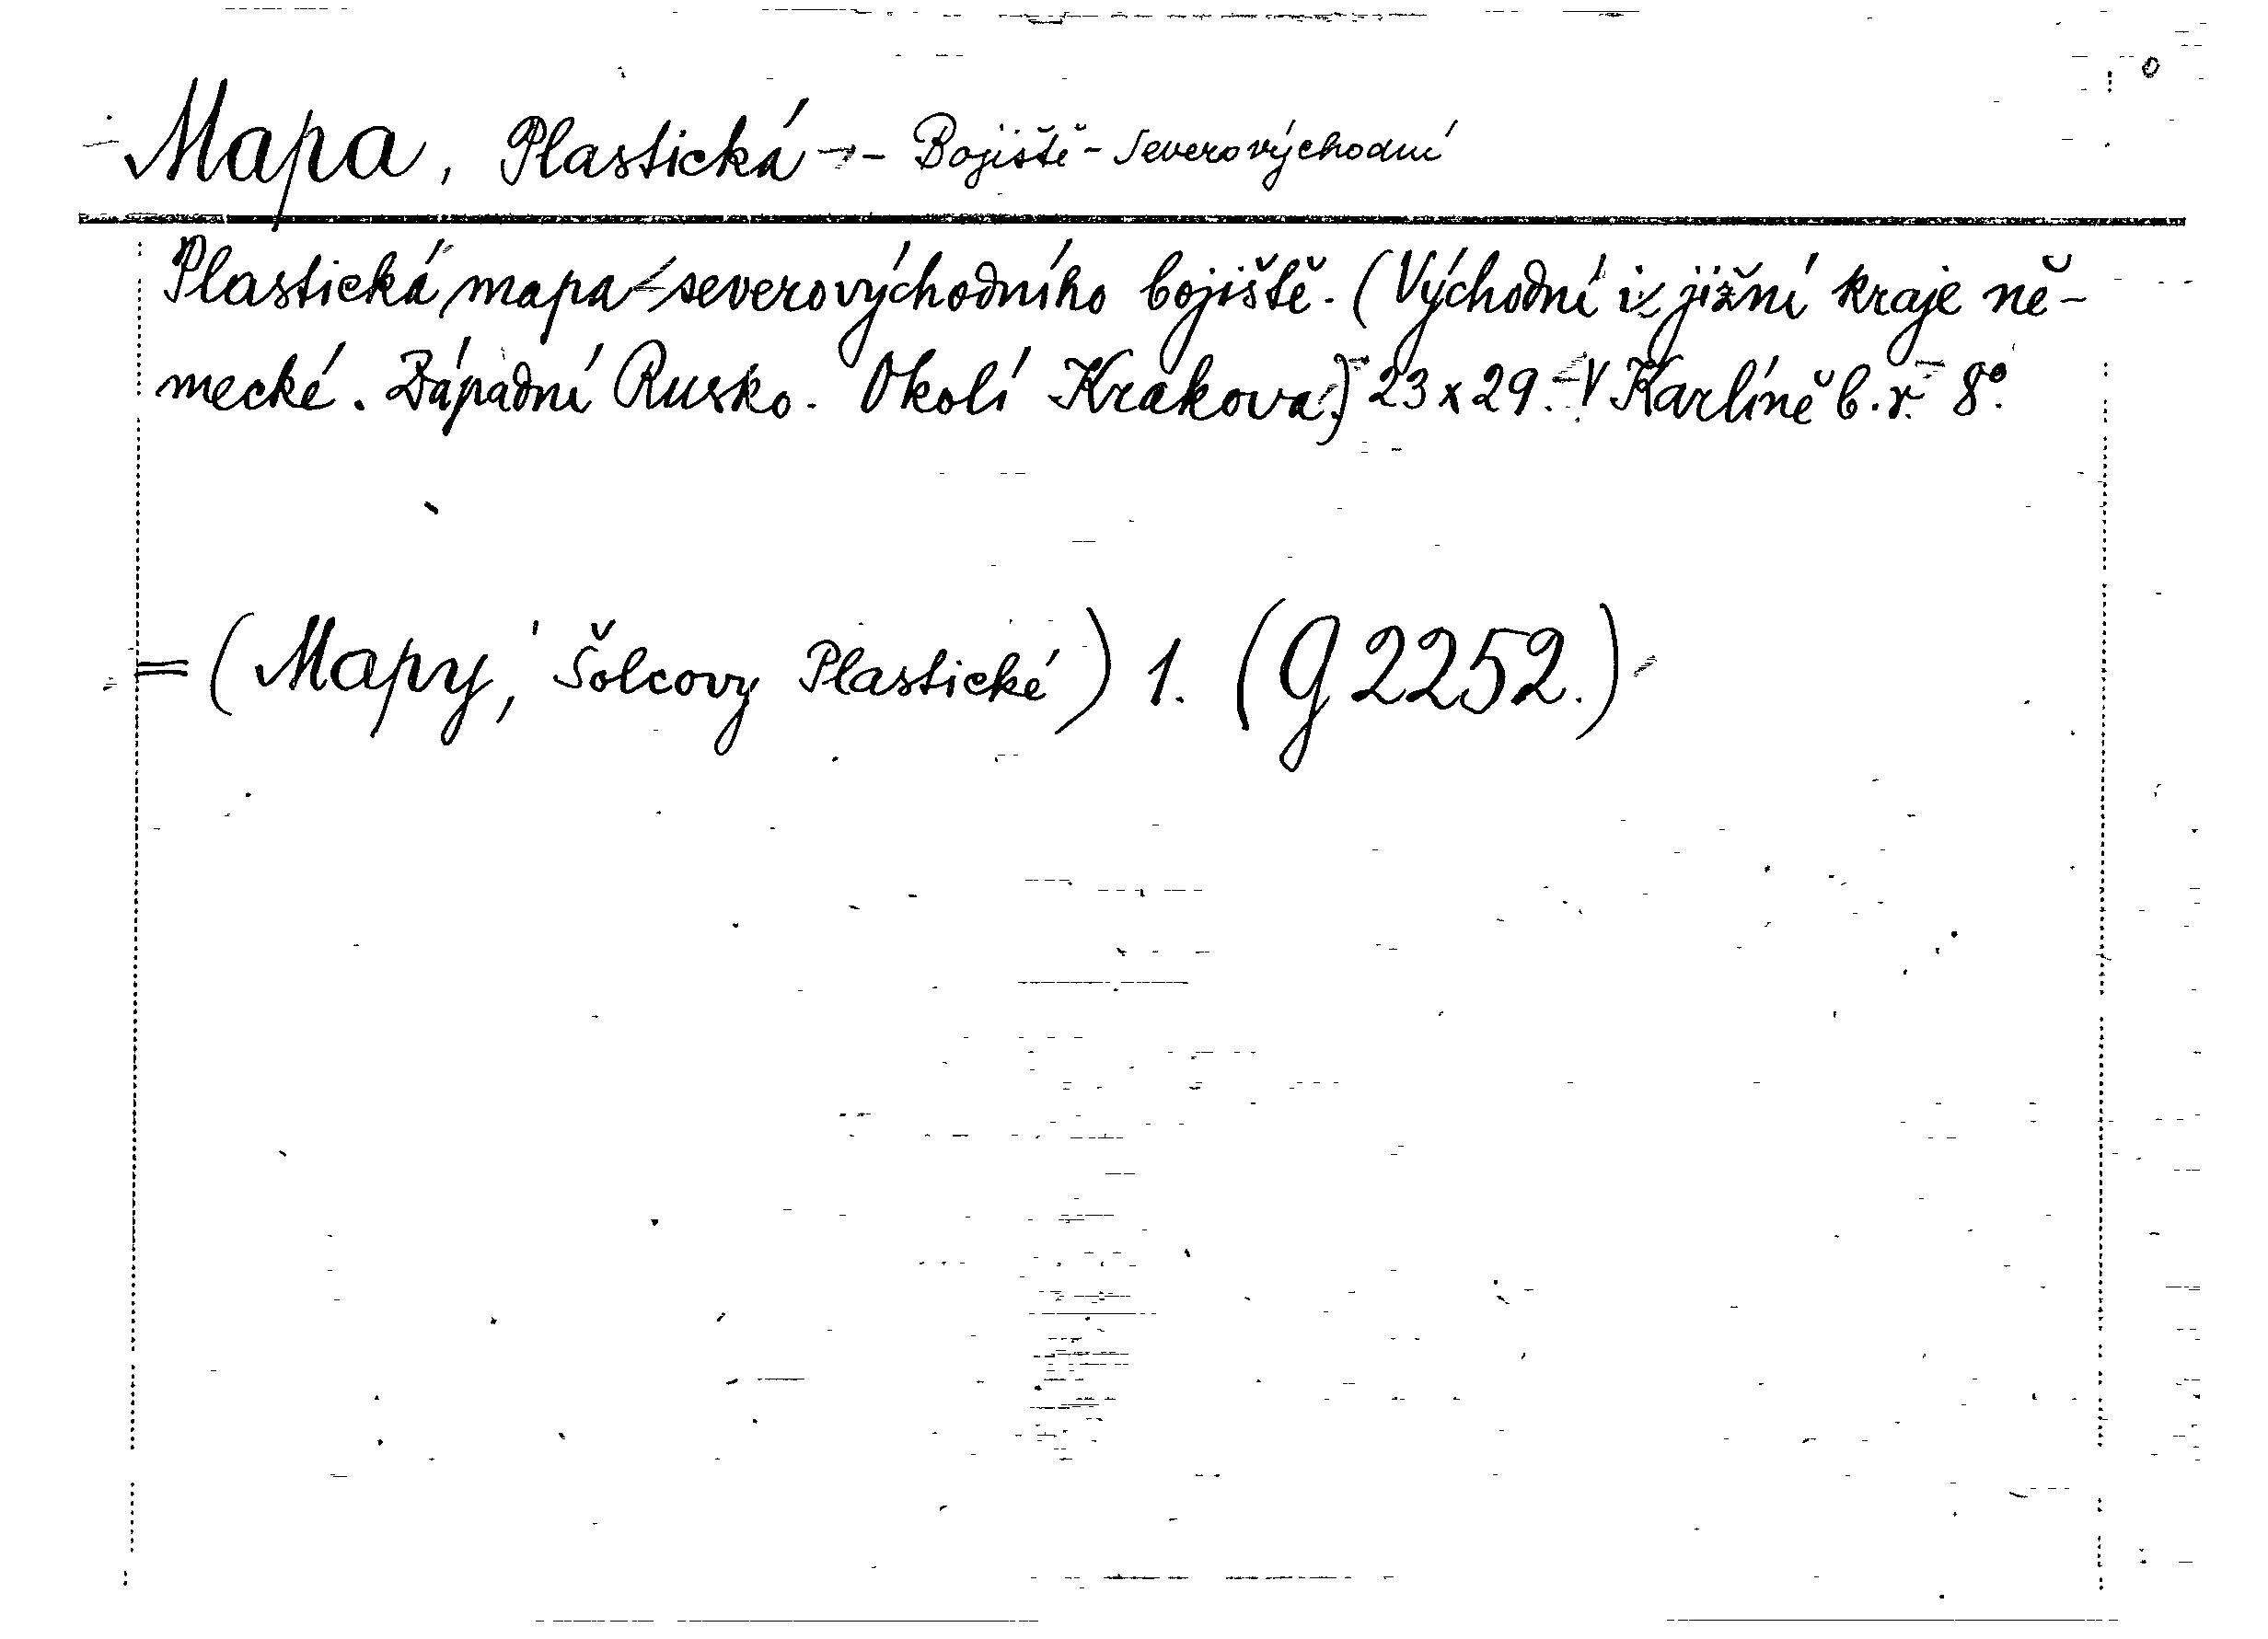 Mapa, Plastická - - Bojiště - Severovýchodní
Plastická mapa severovýchodního bojiště. (Východní i jižní kraje ně-
mecké. Západní Rusko. Okolí Krakova.) 23 x 29. - V Karlíně b. r. 8°.
= (Mapy, Šolcovy Plastické) 1. (G 2252.)